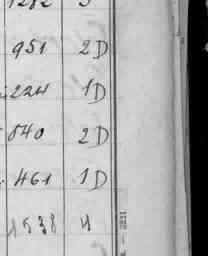 951 2D
224 1D
640 2D
461 1D
1538 4